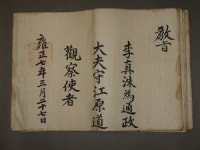 敎旨
李真洙爲通政
大夫守江原道
觀察使者
雍正七年三月二十七日